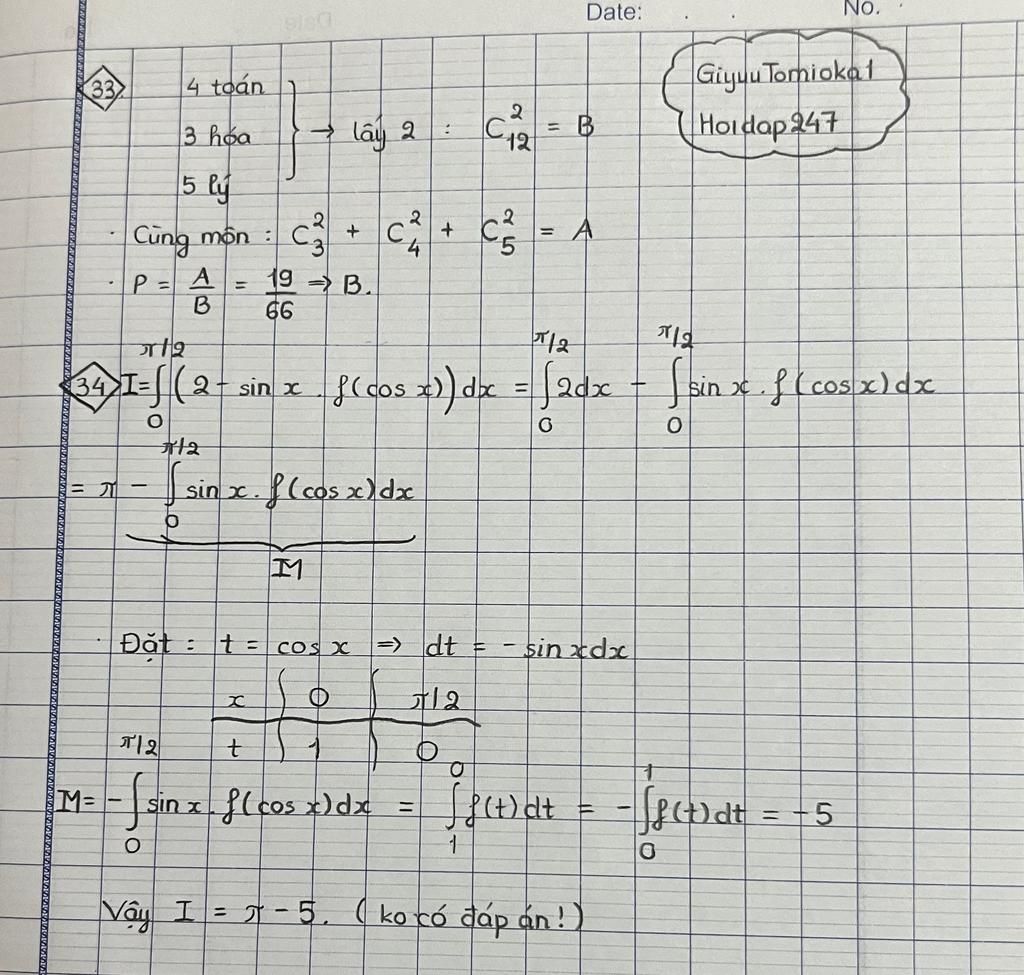 Date: . . No. .
GiyuuTomioka1
Hoidap247
33 4 toán
3 hóa
5 lý
} → lấy 2 : C₁₂² = B
. Cùng môn : C₃² + C₄² + C₅² = A
. P = A/B = 19/66 ⇒ B.
34 I = ∫₀^(π/2) (2 - sin x . f(cos x)) dx = ∫₀^(π/2) 2dx - ∫₀^(π/2) sin x . f(cos x) dx
= π - ∫₀^(π/2) sin x . f(cos x) dx
M
. Đặt : t = cos x ⇒ dt = - sin x dx
x | 0 | π/2
t | 1 | 0
M = - ∫₀^(π/2) sin x . f(cos x) dx = ∫₁^0 f(t) dt = - ∫₀^1 f(t) dt = - 5
Vậy I = π - 5. (ko có đáp án!)